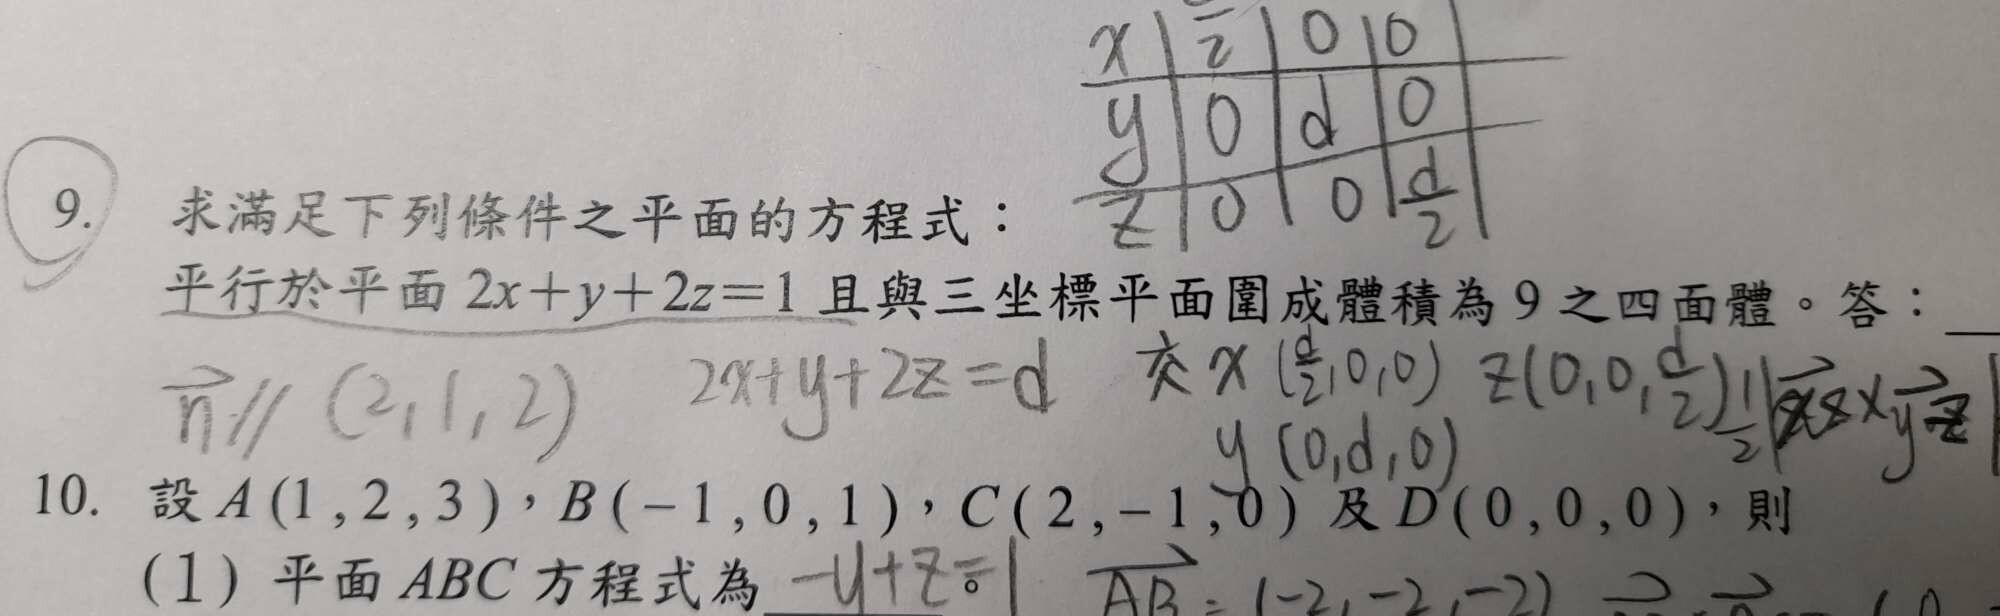 x 2 0 0
y 0 d 0
z 0 0 d/2
9. 求滿足下列條件之平面的方程式：
平行於平面 2x+y+2z=1 且與三坐標平面圍成體積為 9 之四面體。答：
n // (2,1,2) 2x+y+2z=d 交 x (d/2,0,0) z(0,0,d/2) 1/2
y (0,d,0)
10. 設 A(1,2,3)，B(-1,0,1)，C(2,-1,0) 及 D(0,0,0)，則
(1) 平面 ABC 方程式為 -y+z=1 。 AB = (-2,-2,-2)